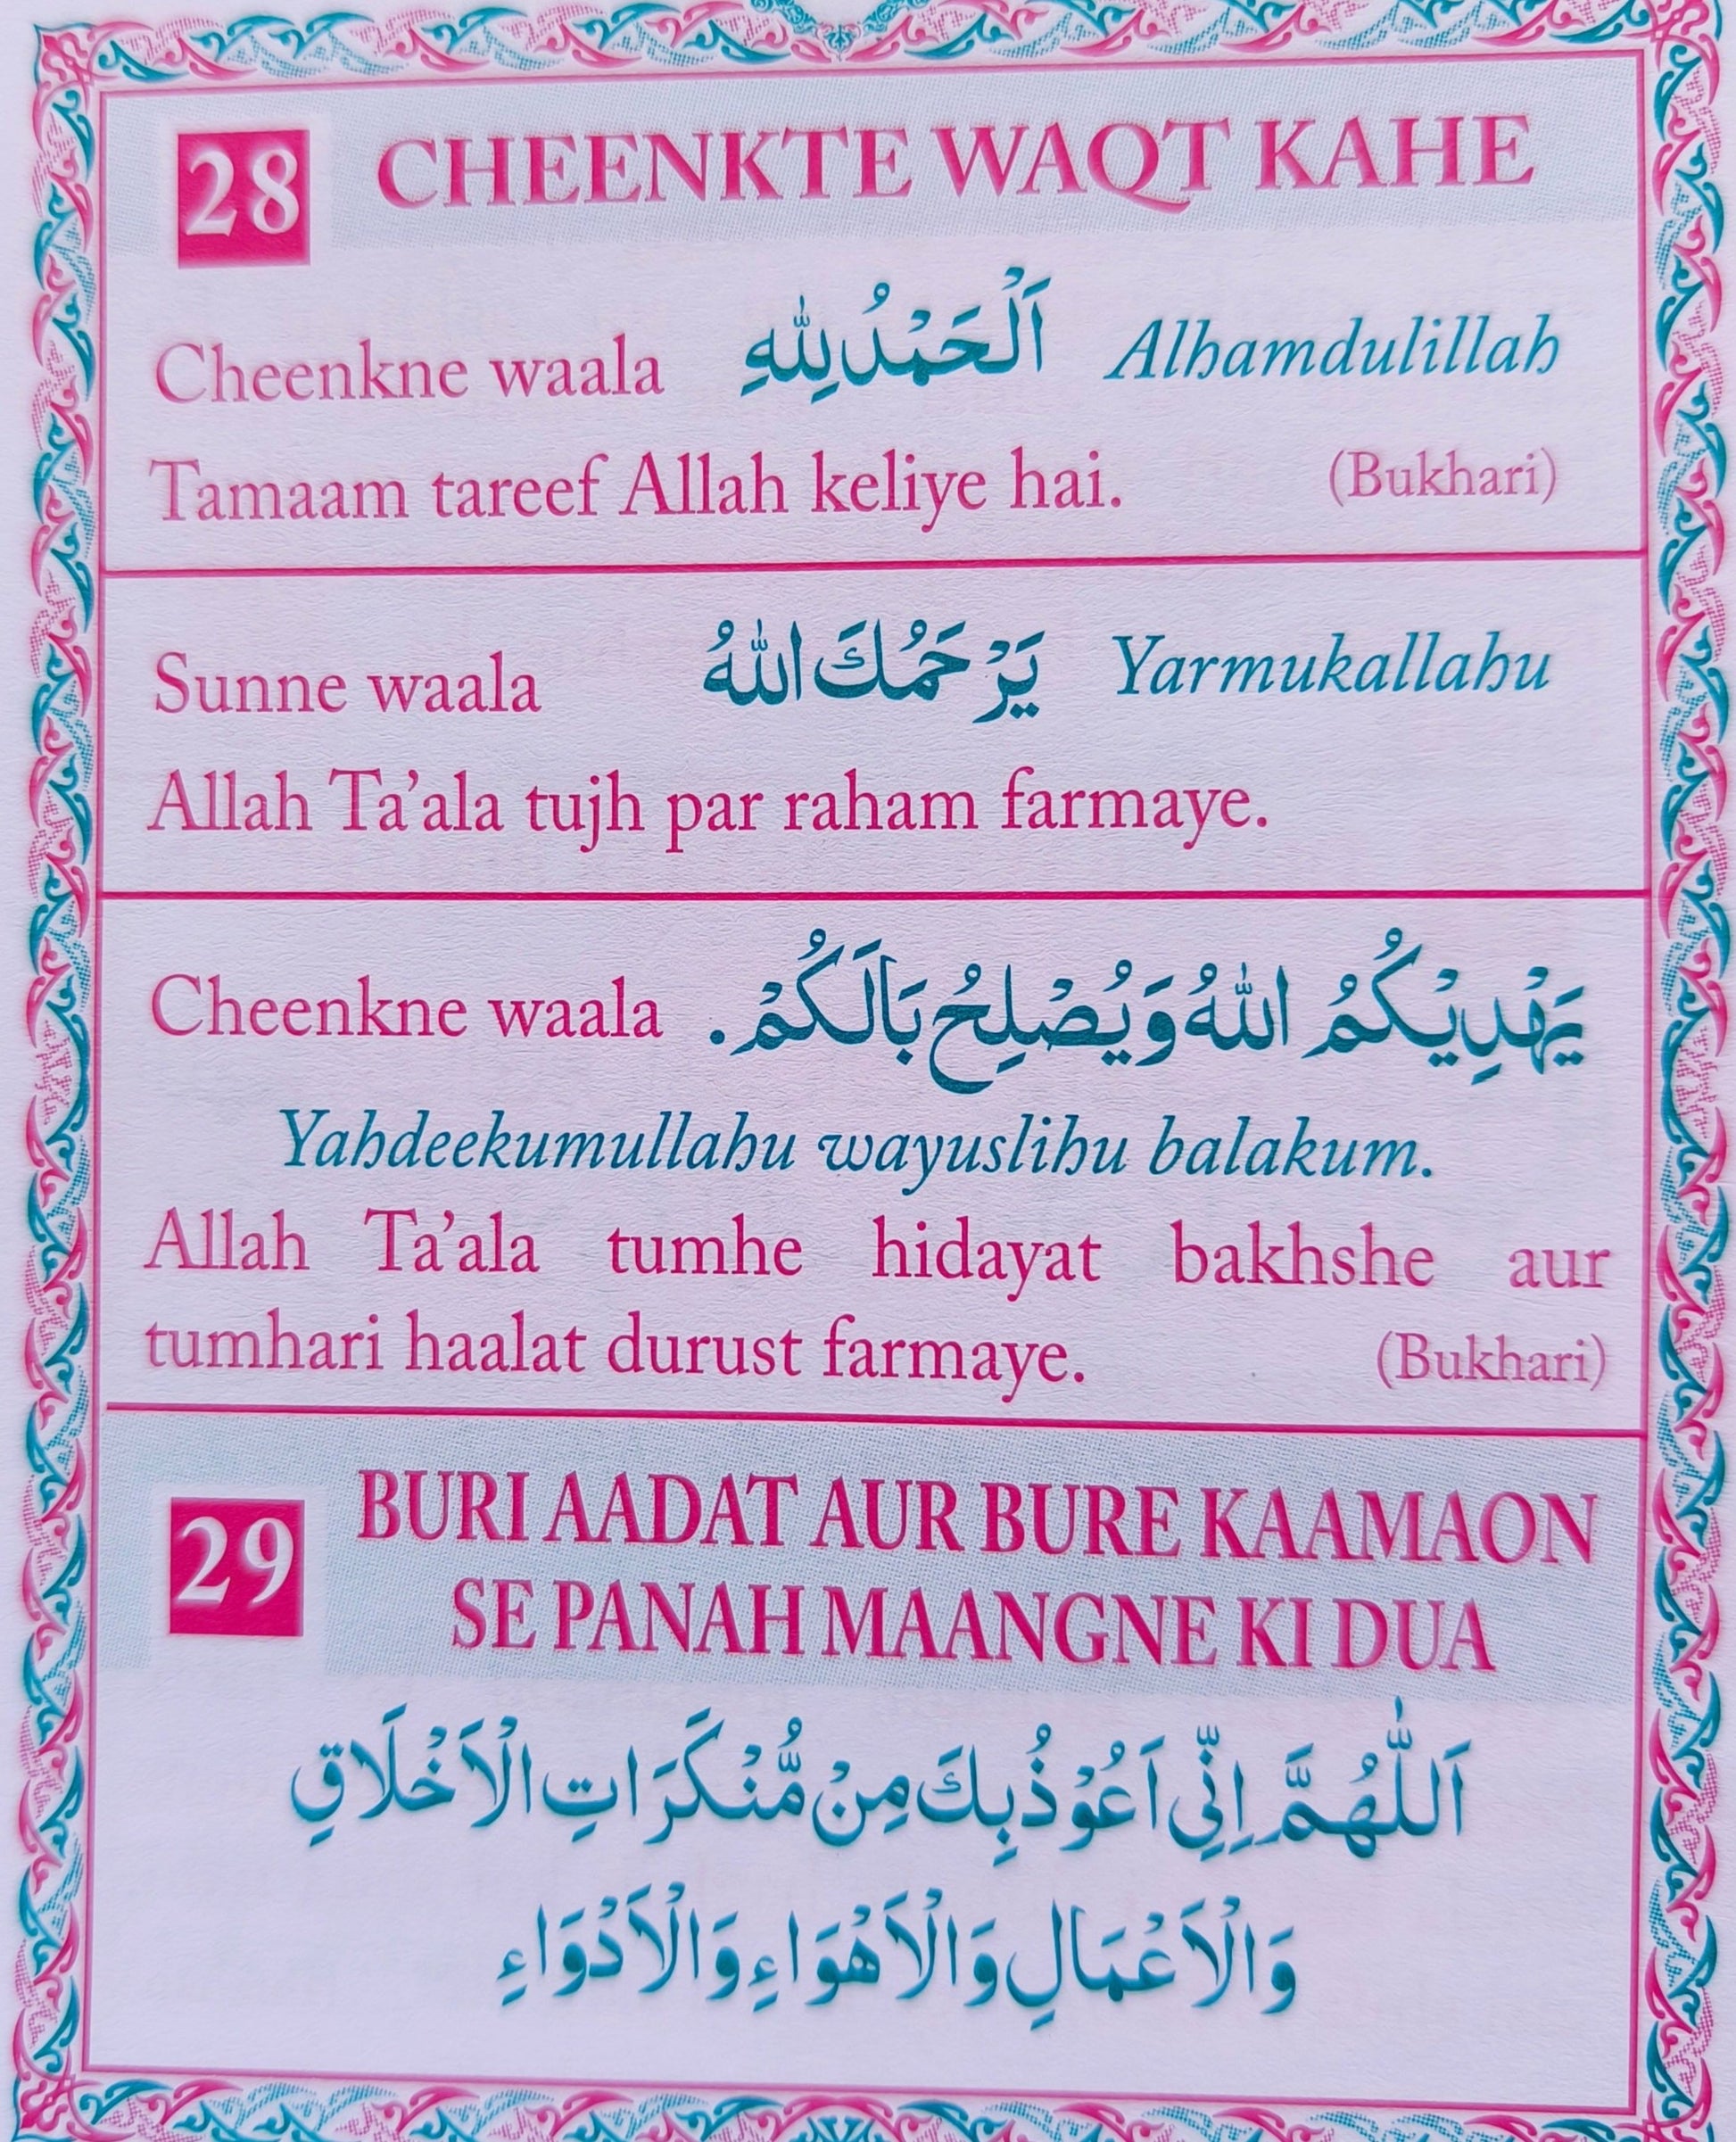 28 CHEENKTE WAQT KAHE
Cheenkne waala اَلْحَمْدُ لِلّٰهِ Alhamdulillah
Tamaam tareef Allah keliye hai. (Bukhari)
Sunne waala يَرْحَمُكَ اللّٰهُ Yarmukallahu
Allah Ta’ala tujh par raham farmaye.
Cheenkne waala يَهْدِيْكُمُ اللّٰهُ وَيُصْلِحُ بَالَكُمْ.
Yahdeekumullahu wayuslihu balakum.
Allah Ta’ala tumhe hidayat bakhshe aur
tumhari haalat durust farmaye. (Bukhari)
29 BURI AADAT AUR BURE KAAMAON
SE PANAH MAANGNE KI DUA
اَللّٰهُمَّ اِنِّيْ اَعُوْذُ بِكَ مِنْ مُّنْكَرَاتِ الْاَخْلَاقِ
وَالْاَعْمَالِ وَالْاَهْوَاءِ وَالْاَدْوَاءِ